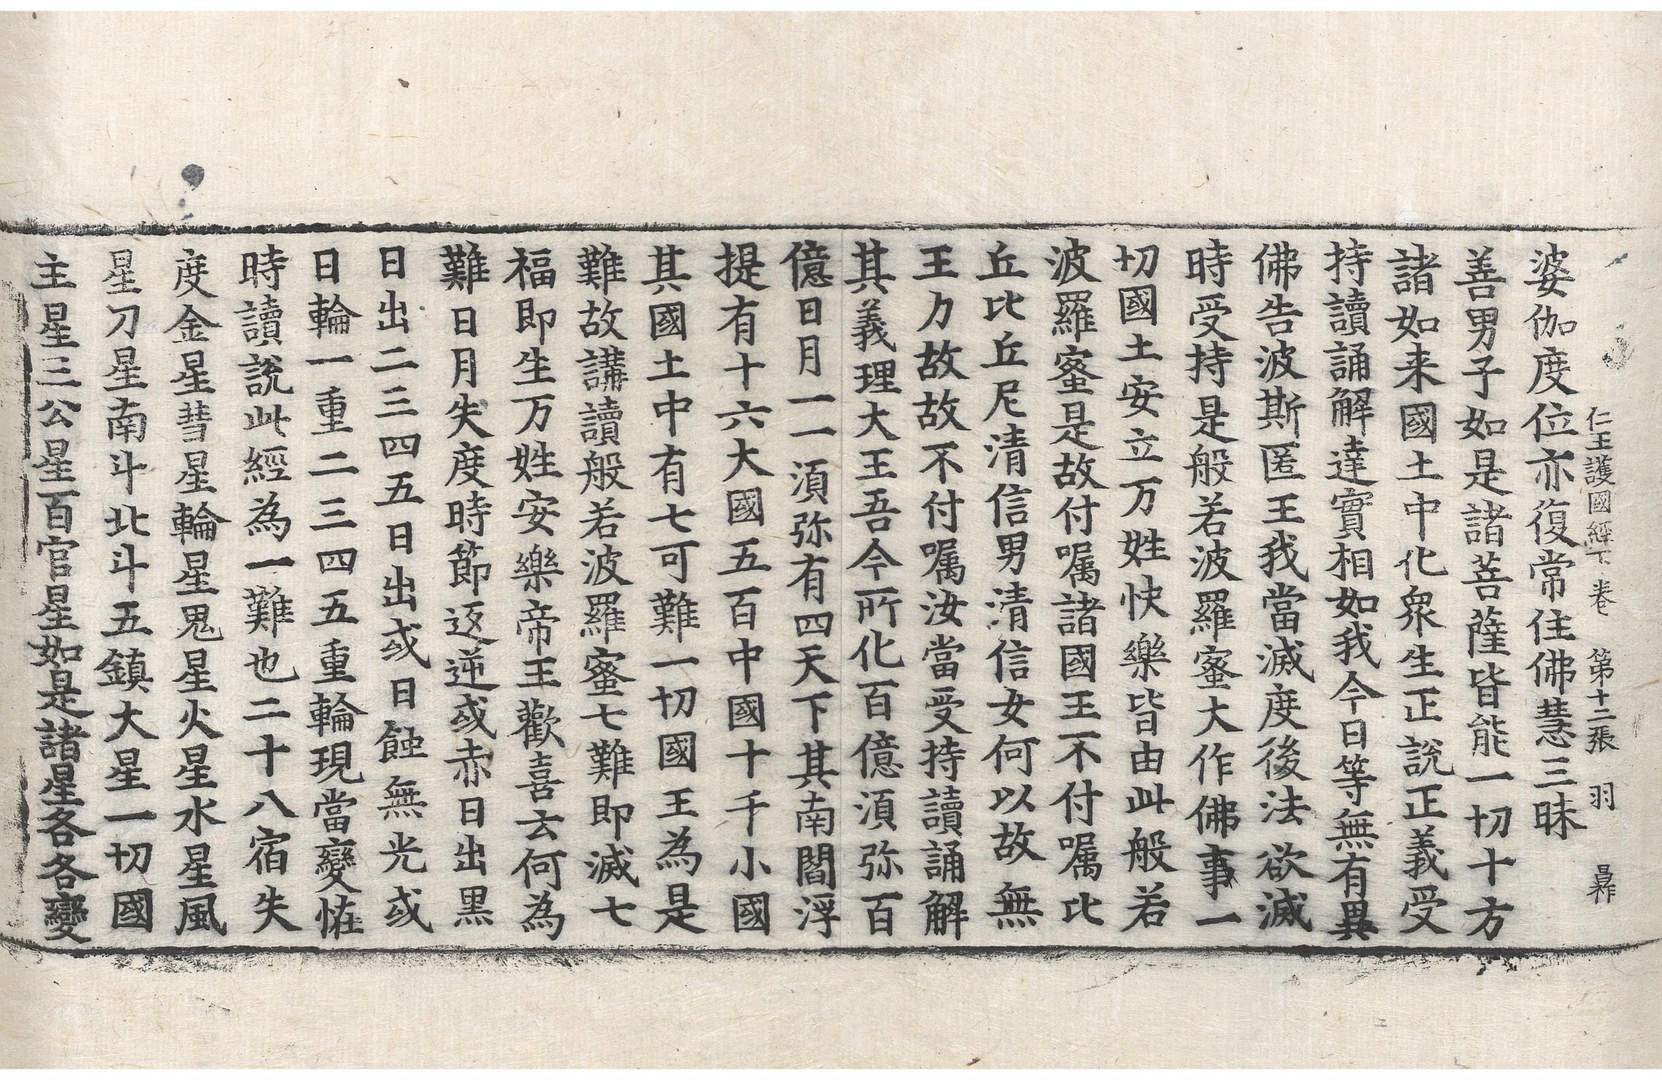 仁王護國經下卷 第十二張 羽
婆伽度位亦復常住佛慧三昧
善男子如是諸菩薩皆能一切十方
諸如来國土中化衆生正說正義受
持讀誦解達實相如我今日等無有異
佛告波斯匿王我當滅度後法欲滅
時受持是般若波羅蜜大作佛事一
切國土安立万姓快樂皆由此般若
波羅蜜是故付嘱諸國王不付嘱比
丘比丘尼清信男清信女何以故無
王力故故不付嘱汝當受持讀誦解
其義理大王吾今所化百億湏弥百
億日月一一湏弥有四天下其南閻浮
提有十六大國五百中國十千小國
其國土中有七可難一切國王為是
難故講讀般若波羅蜜七難即滅七
福即生万姓安樂帝王歡喜云何為
難日月失度時節返逆或赤日出黑
日出二三四五日出或日蝕無光或
日輪一重二三四五重輪現當變恠
時讀說此經為一難也二十八宿失
度金星彗星輪星鬼星火星水星風
星刀星南斗北斗五鎮大星一切國
主星三公星百官星如是諸星各各變